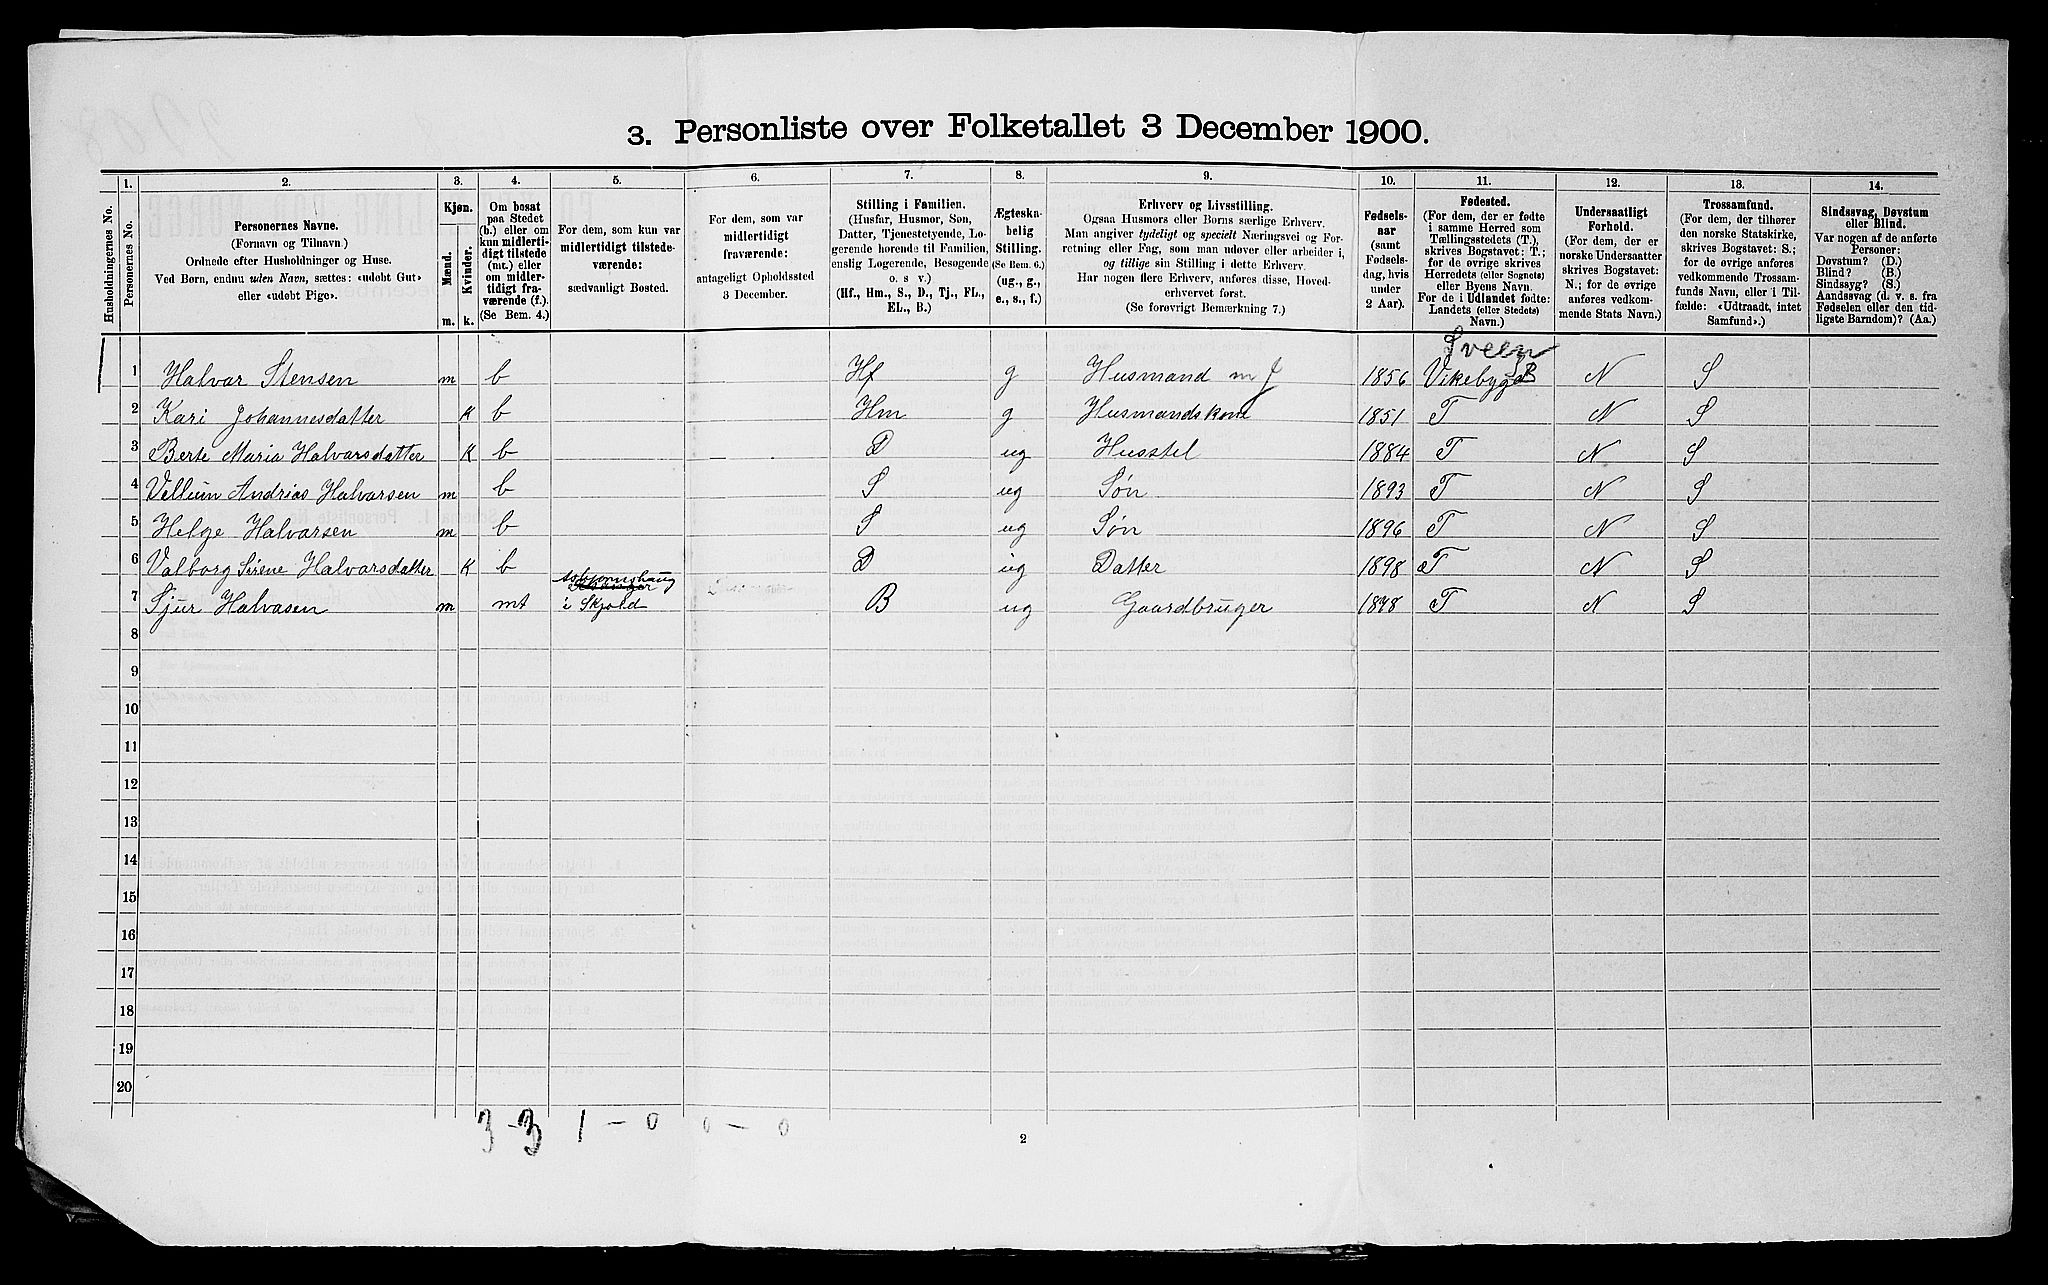 3. Personliste over Folketallet 3 December 1900.
1. 2. 3. 4. 5. 6. 7. 8. 9. 10. 11. 12. 13. 14.
Husholdningernes No.
Personernes No.
Personernes Navne.
(Fornavn og Tilnavn.)
Ordnede efter Husholdninger og Huse.
Ved Børn, endnu uden Navn, sættes: «udøbt Gut»
eller «udøbt Pige».
Kjøn.
Mænd.
Kvinder.
m. k.
Om bosat
paa Stedet
(b.) eller om
kun midlerti-
digt tilstede
(mt.) eller
om midler-
tidigt fra-
værende (f.).
(Se Bem. 4.)
For dem, som kun var
midlertidigt tilstede-
værende:
sædvanligt Bosted.
For dem, som var
midlertidigt
fraværende:
antageligt Opholdssted
3 December.
Stilling i Familien.
(Husfar, Husmor, Søn,
Datter, Tjenestetyende, Lo-
gerende hørende til Familien,
enslig Logerende, Besøgende
o. s. v.)
(Hf., Hm., S., D., Tj., FL.,
EL., B.)
Ægteska-
belig
Stilling.
(Se Bem. 6.)
(ug., g.,
e., s., f.)
Erhverv og Livsstilling.
Ogsaa Husmors eller Børns særlige Erhverv.
Man angiver tydeligt og specielt Næringsvei og For-
retning eller Fag, som man udøver eller arbeider i,
og tillige sin Stilling i dette Erhverv.
Har nogen flere Erhverv, anføres disse, Hoved-
erhvervet først.
(Se forøvrigt Bemærkning 7.)
Fødsels-
aar
(samt
Fødsels-
dag, hvis
under
2 Aar).
Fødested.
(For dem, der er fødte
i samme Herred som
Tællingsstedets (T.),
skrives Bogstavet: T.;
for de øvrige skrives
Herredets (eller Sognets)
eller Byens Navn.
For de i Udlandet fødte:
Landets (eller Stedets)
Navn.)
Undersaatligt
Forhold.
(For dem, der er
norske Undersaatter
skrives Bogstavet:
N.; for de øvrige
anføres vedkom-
mende Stats Navn.)
Trossamfund.
(For dem, der tilhører
den norske Statskirke,
skrives Bogstavet: S.;
for de øvrige anføres
vedkommende Trossam-
funds Navn, eller i Til-
fælde: «Udtraadt, intet
Samfund».)
Sindssvag, Døvstum
eller Blind.
Var nogen af de anførte
Personer:
Døvstum? (D.)
Blind? (B.)
Sindssyg? (S.)
Aandssvag (d. v. s. fra
Fødselen eller den tid-
ligste Barndom)? (Aa.)
Sveen
1 Halvar Stensen m b Hf g Husmand m J 1856 Vikebygd N S
2 Kari Johannesdatter K b Hm g Husmandskone 1851 T N S
3 Berte Maria Halvarsdatter K b D ug Husstel 1884 T N S
4 Vellum Andrias Halvarsen m b S ug Søn 1893 T N S
5 Helge Halvarsen m b S ug Søn 1896 T N S
6 Valborg Sirene Halvarsdatter K b D ug Datter 1898 T N S
Asbjørnshaug
7 Sjur Halvasen m mt i Skjold B ug Gaardbruger 1848 T N S
8
9
10
11
12
13
14
15
16
17
18
19
20
3-3 1-0 0-0
2